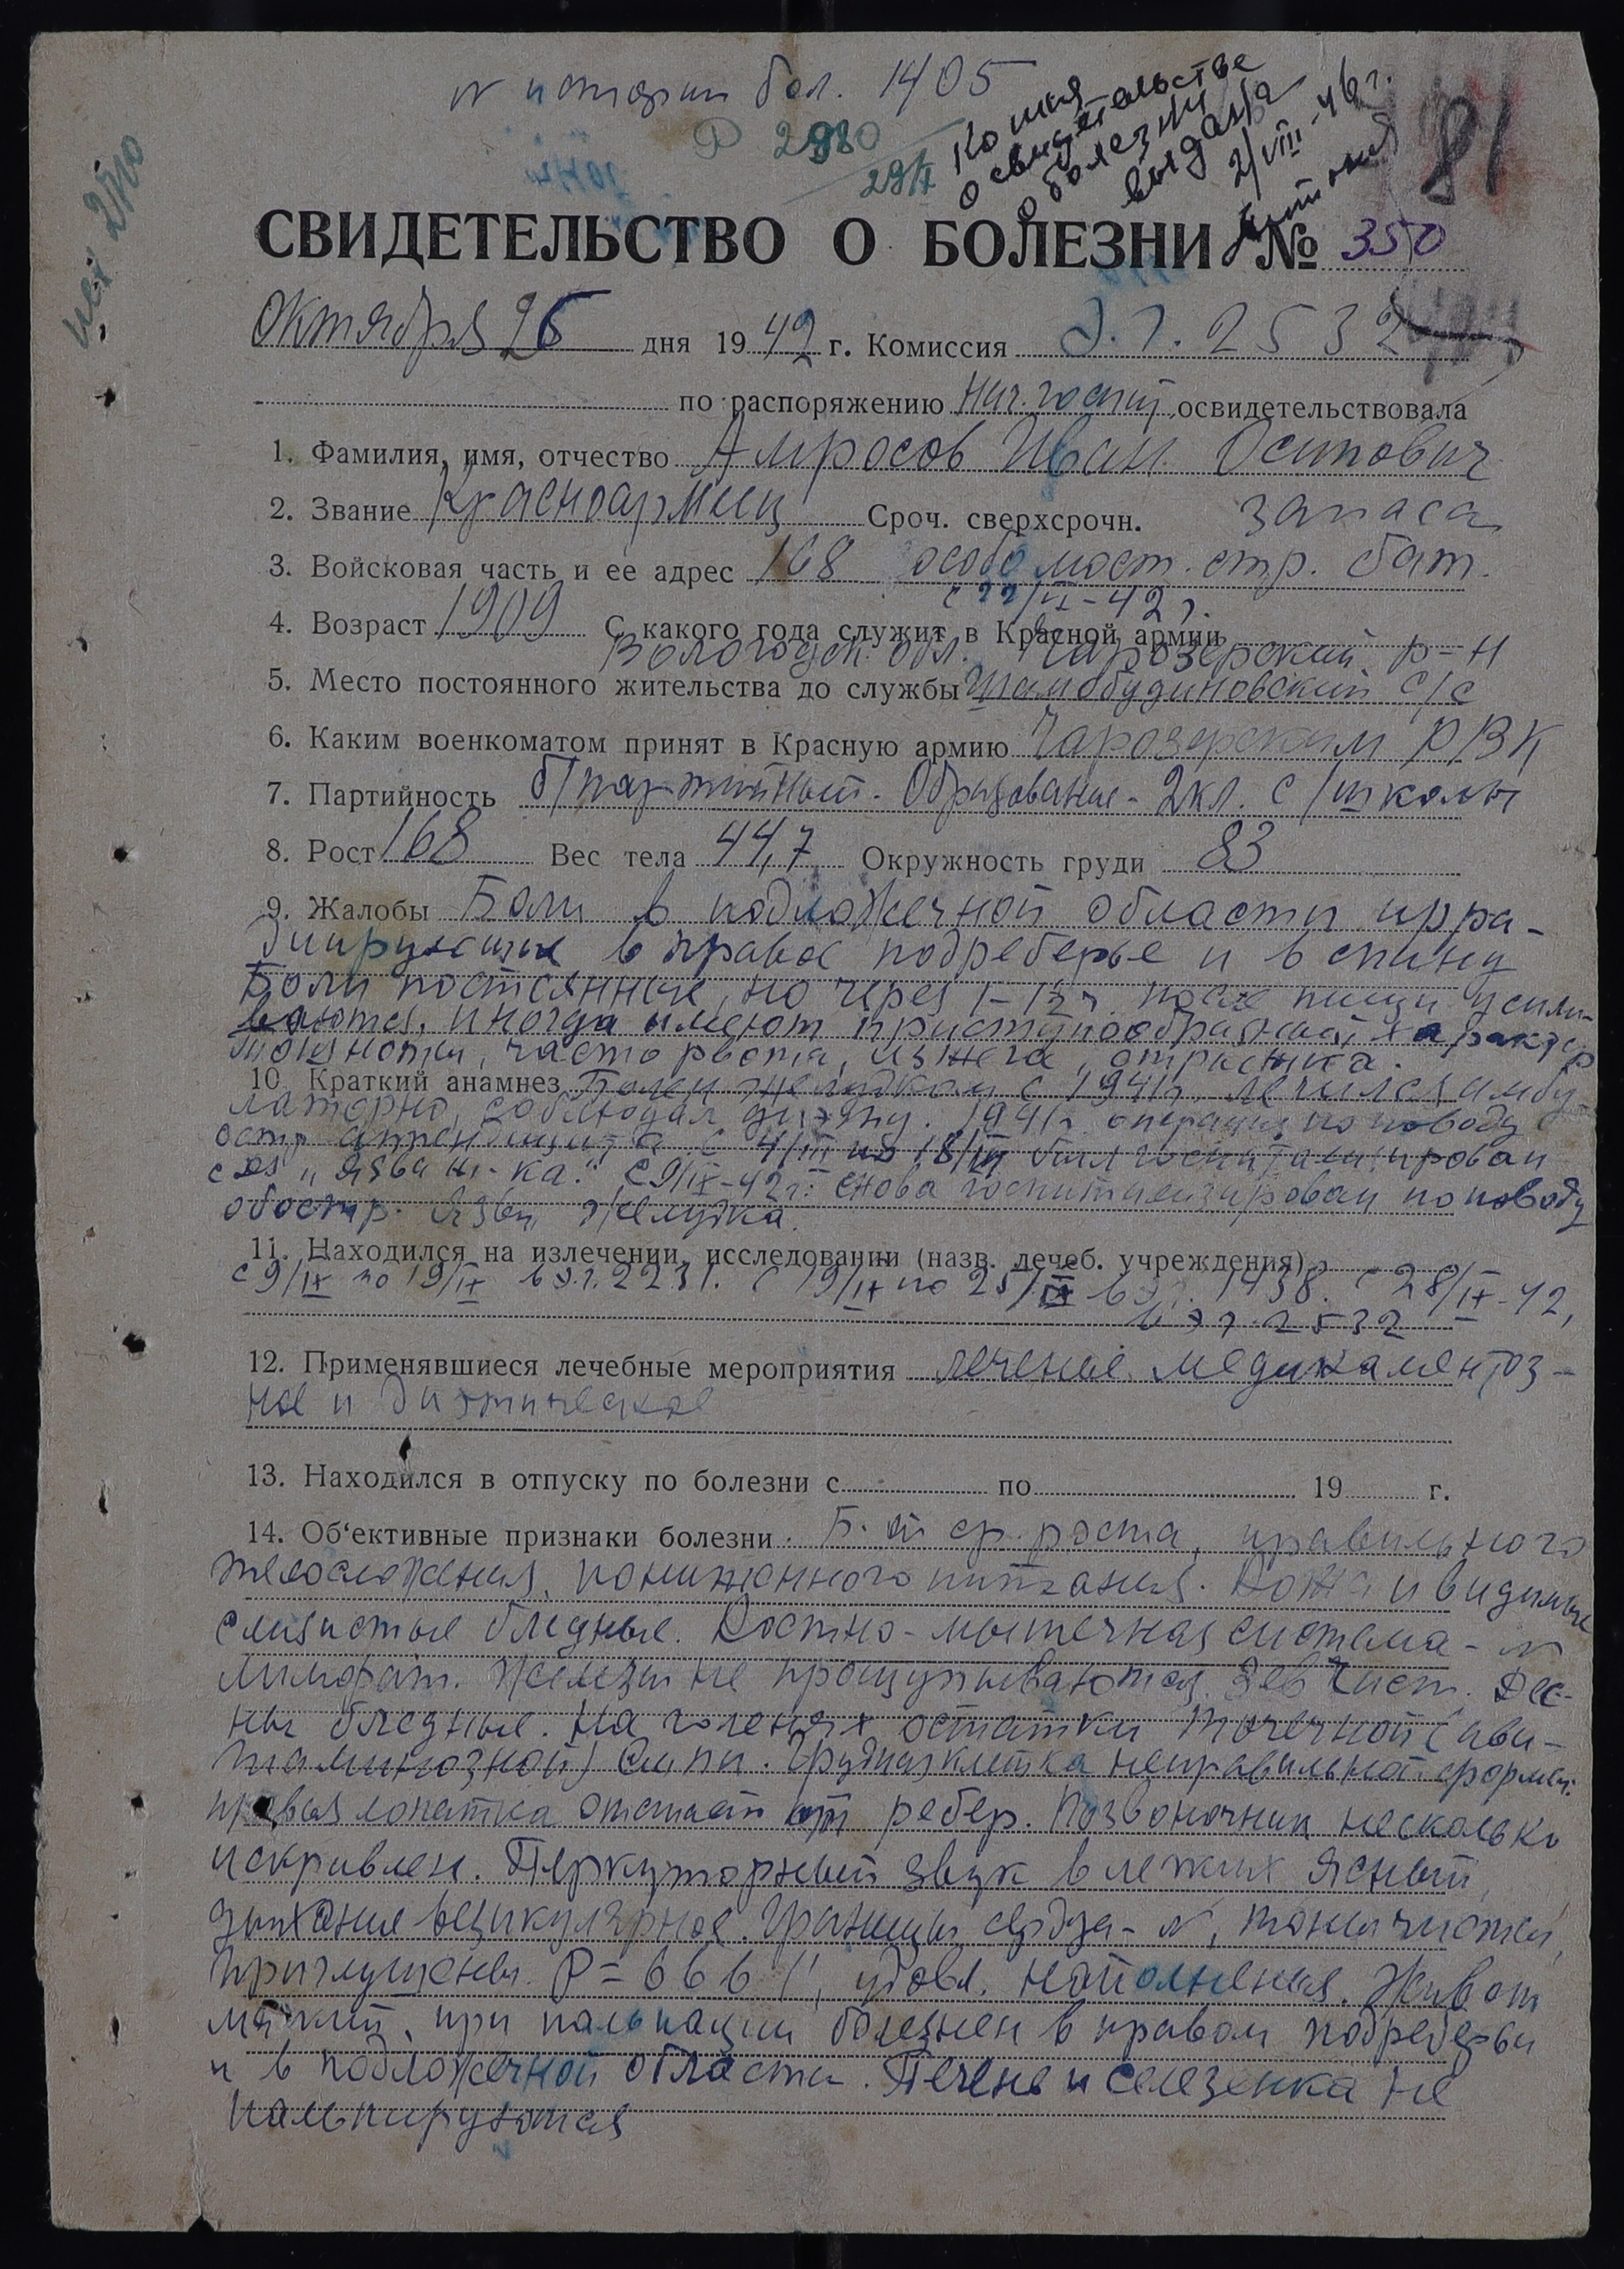 N истории бол. 1405
Р 2980
29/X
Копия
о свидетельстве
о болезни
выдана
2/VIII-46 г.
81
СВИДЕТЕЛЬСТВО О БОЛЕЗНИ № 350
Октября 26 дня 1942 г. Комиссия Э.Г. 2532
по распоряжению Нач. госпит. освидетельствовала
1. Фамилия, имя, отчество Амросов Иван Осипович
2. Звание Красноармеец Сроч. сверхсрочн. запаса
3. Войсковая часть и ее адрес 168 особо мост. стр. бат.
с 22/II-42 г.
4. Возраст 1909 С какого года служит в Красной армии
Вологодск. обл. Чарозерский р-н
5. Место постоянного жительства до службы с/с
6. Каким военкоматом принят в Красную армию Чарозерским РВК
7. Партийность б/партийный. Образование - 2 кл. с/школы
8. Рост 168 Вес тела 44,7 Окружность груди 83
9. Жалобы Боли в подложечной области ирра-
диирующие в правое подреберье и в спину
Боли постоянные, но через 1-1½ ч. после пищи усили-
ваются, иногда имеют приступообразный характер
тошнота, часто рвота, изжога, отрыжка.
10. Краткий анамнез Болен желудком с 1941 г., лечился амбу-
латорно, соблюдал диэту. 1941 г. операция по поводу
остр. аппендицита. С 4/III по 18/III был госпитализирован
с ds „язва ж-ка." С 9/IX-42 г. снова госпитализирован по поводу
обостр. язвы желудка.
11. Находился на излечении, исследовании (назв. лечеб. учреждения)
с 9/IX по 19/IX в э.г. 2231. С 19/IX по 25/IX в э.г. 1438. с 28/IX-42,
в э.г. 2532
12. Применявшиеся лечебные мероприятия лечение медикаментоз-
ное и диэтическое
13. Находился в отпуску по болезни с по 19 г.
14. Об‘ективные признаки болезни Б-ой ср. роста, правильного
телосложения, пониженного питания. Кожа и видимые
слизистые бледные. Костно-мышечная система - N
лимфат. железы не прощупываются. Зев чист. Дес-
ны бледные. На голенях остатки точечной (ави-
таминозной) сыпи. Грудная клетка неправильной формы.
правая лопатка отстает от ребер. Позвоночник несколько
искривлен. Перкуторный звук в легких ясный,
дыхание везикулярное. Границы сердца - N, тоны чисты,
приглушены. Р = 66 в 1', удовл. наполнения. Живот
мягкий, при пальпации болезнен в правом подреберьи
и в подложечной области. Печень и селезенка не
пальпируются